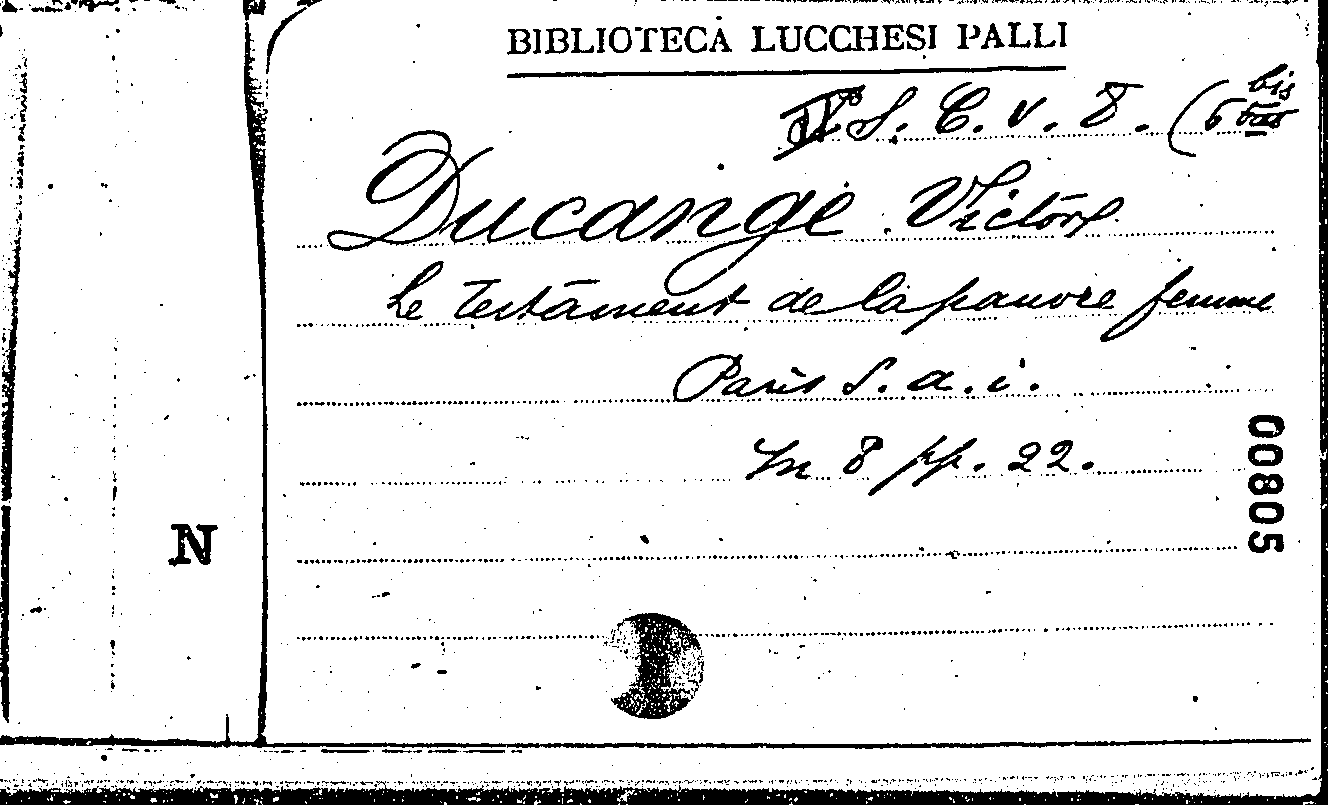 BIBLIOTECA LUCCHESI PALLI
S. C. v. 8. (6 bis
Ducange Victor
Le testament de la pauvre femme
Paris S. a. i.
In 8 pp. 22.
00805
N